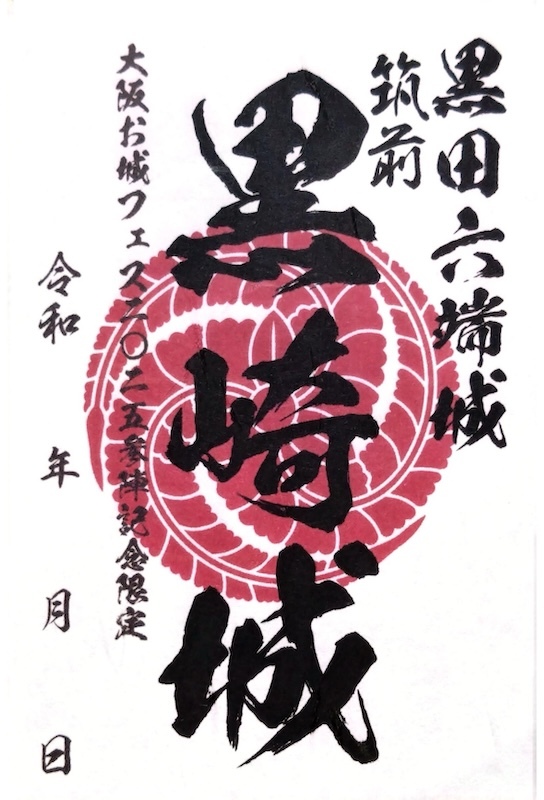 黒田六端城
筑前
黒崎城
大阪お城フェス二〇二五参陣記念限定
令和　年　月　日